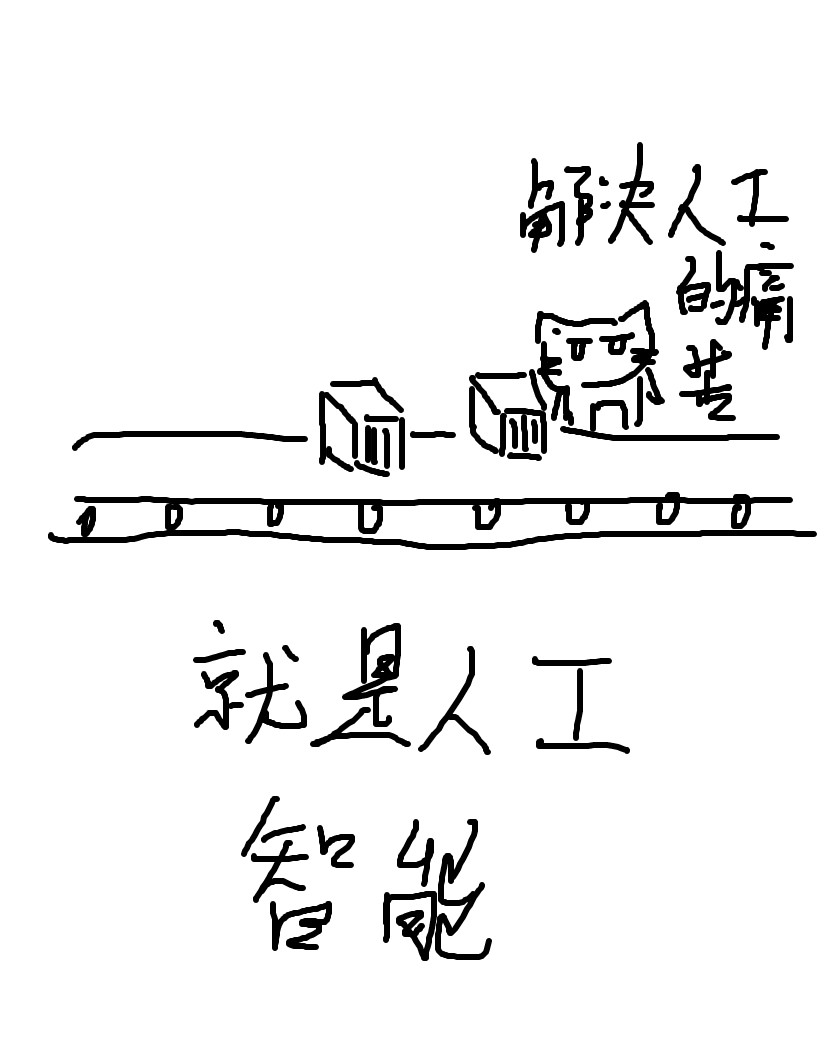 解决人工
的痛
苦
就是人工
智能